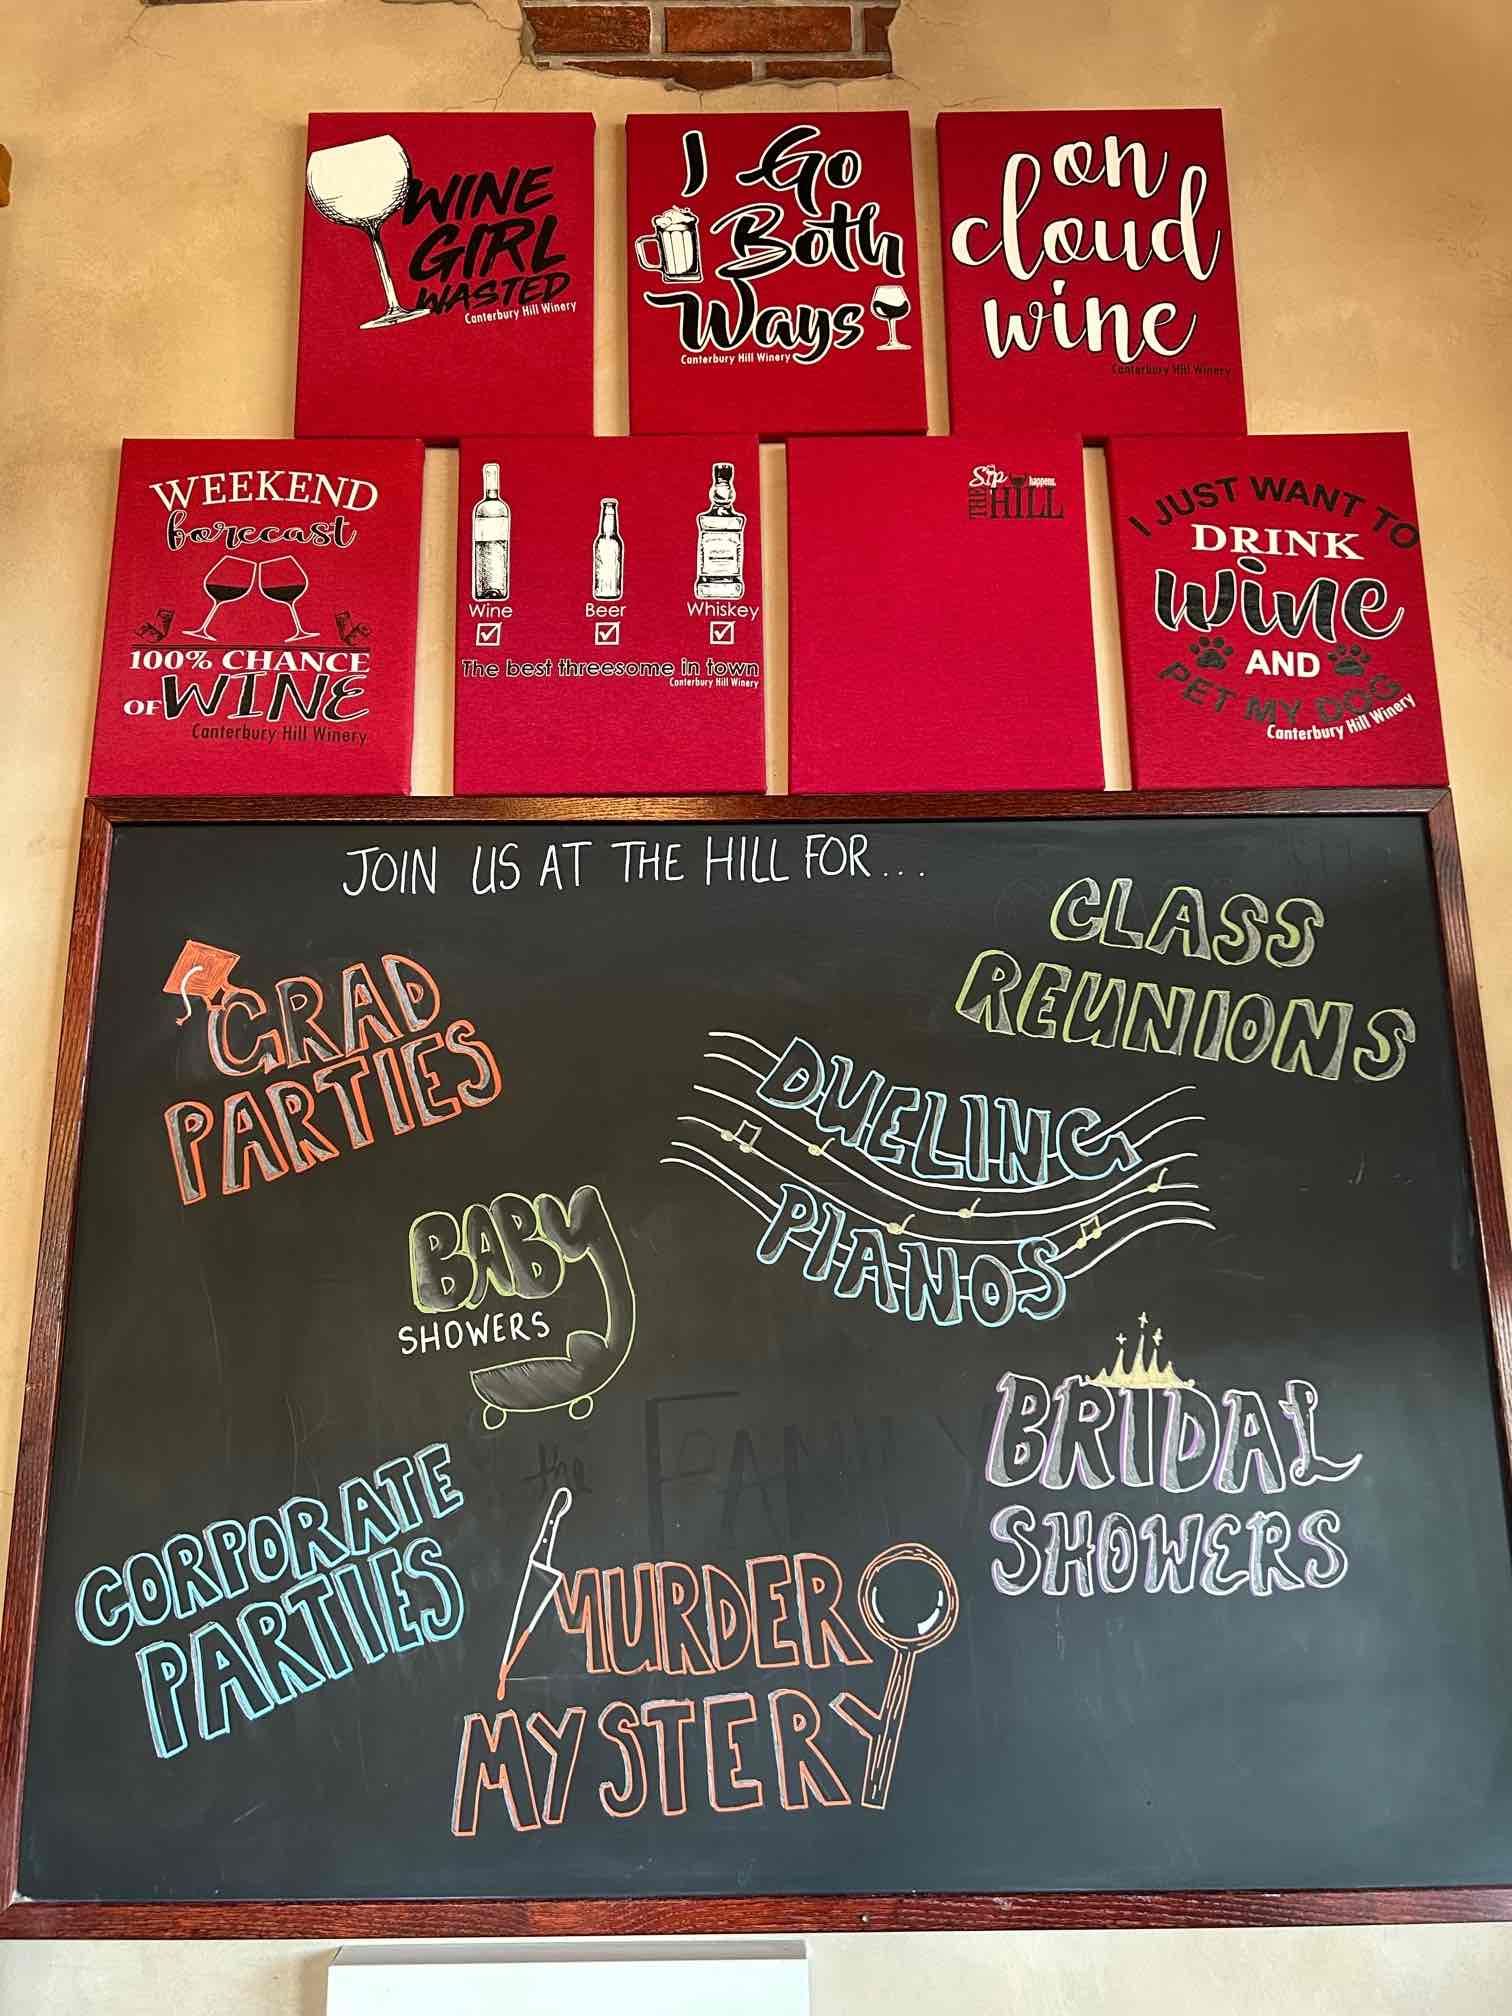 WINE
GIRL
WASTED
Canterbury Hill Winery
I Go
Both
Ways
Canterbury Hill Winery
on
cloud
wine
Canterbury Hill Winery
WEEKEND
forecast
100% CHANCE
OF WINE
Canterbury Hill Winery
Wine Beer Whiskey
The best threesome in town
Canterbury Hill Winery
Sip happens.
THE HILL
I JUST WANT TO
DRINK
wine
AND
PET MY DOG
Canterbury Hill Winery
JOIN US AT THE HILL FOR...
GRAD
PARTIES
CLASS
REUNIONS
DUELING
PIANOS
BABY
SHOWERS
BRIDAL
SHOWERS
the FAMILY
CORPORATE
PARTIES
MURDER
MYSTERY